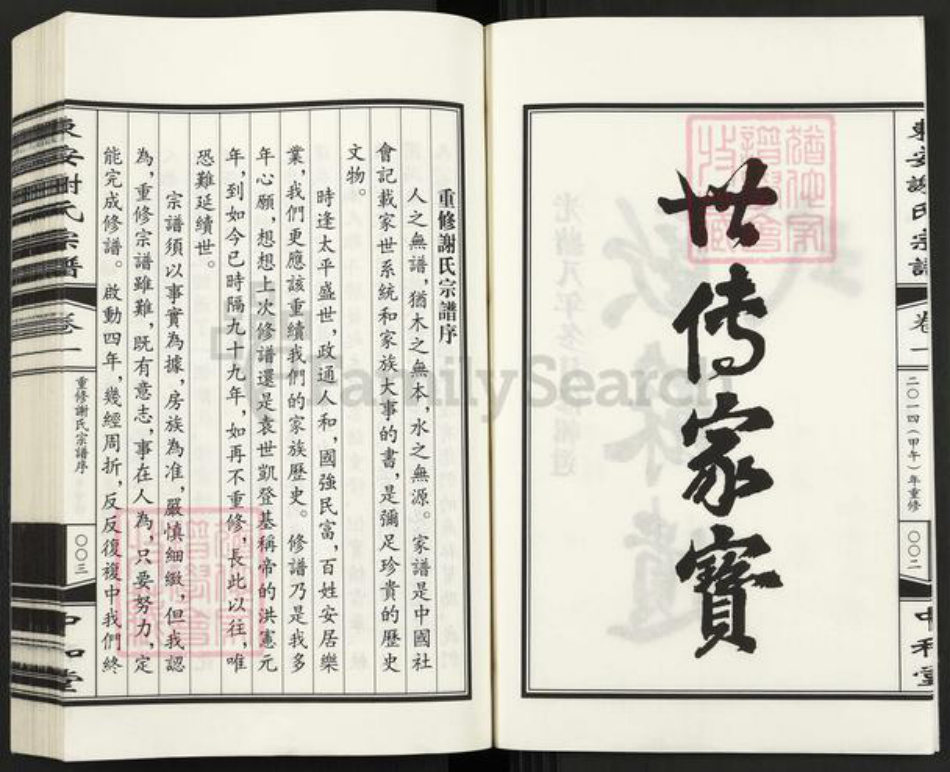 東安謝氏宗譜
卷一
二〇一四(甲午)年重修
〇〇二
中和堂
世传家寶
重修謝氏宗譜序
人之無譜,猶木之無本,水之無源。家譜是中國社
會記載家世系統和家族大事的書,是彌足珍貴的歷史
文物。
時逢太平盛世,政通人和,國強民富,百姓安居樂
業,我們更應該重續我們的家族歷史。修譜乃是我多
年心願,想想上次修譜還是袁世凱登基稱帝的洪憲元
年,到如今已時隔九十九年,如再不重修,長此以往,唯
恐難延續世。
宗譜須以事實為據,房族為准,嚴慎細緻,但我認
為,重修宗譜雖難,既有意志,事在人為,只要努力,定
能完成修譜。啟動四年,幾經周折,反反復複中我們終
東安謝氏宗譜
卷一
重修謝氏宗譜序
〇〇三
中和堂
FamilySearch